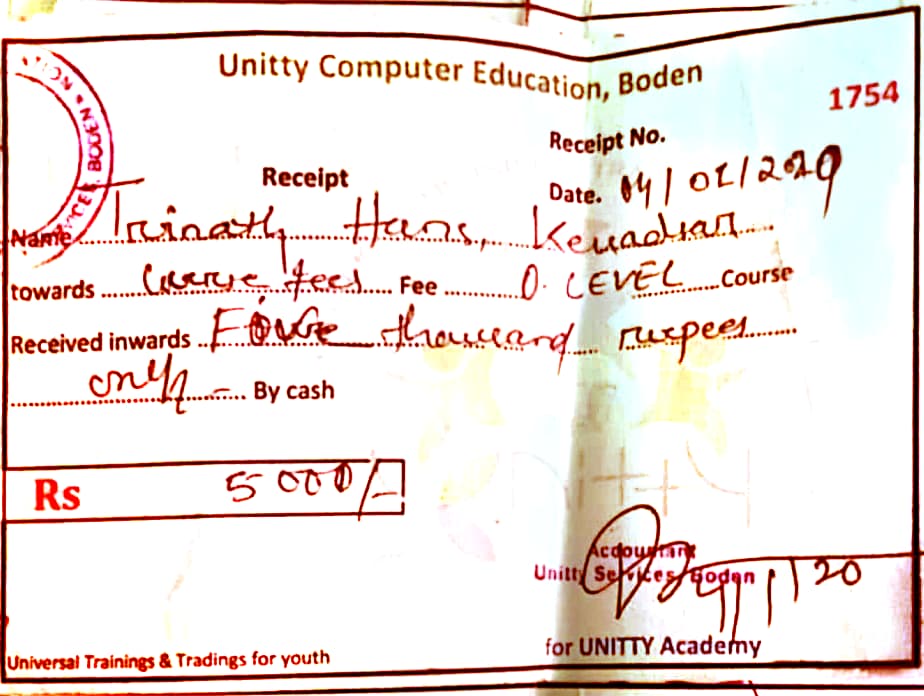 Unitty Computer Education, Boden
1754
BODEN
Receipt No.
Receipt
Date. 04/01/2020
Name Trinath Hans, Kendughar
towards course fees Fee O. LEVEL Course
Received inwards thousand rupees
only - By cash
Rs 5000/-
Accountant
Unitty Services Boden
4/1/20
for UNITTY Academy
Universal Trainings & Tradings for youth